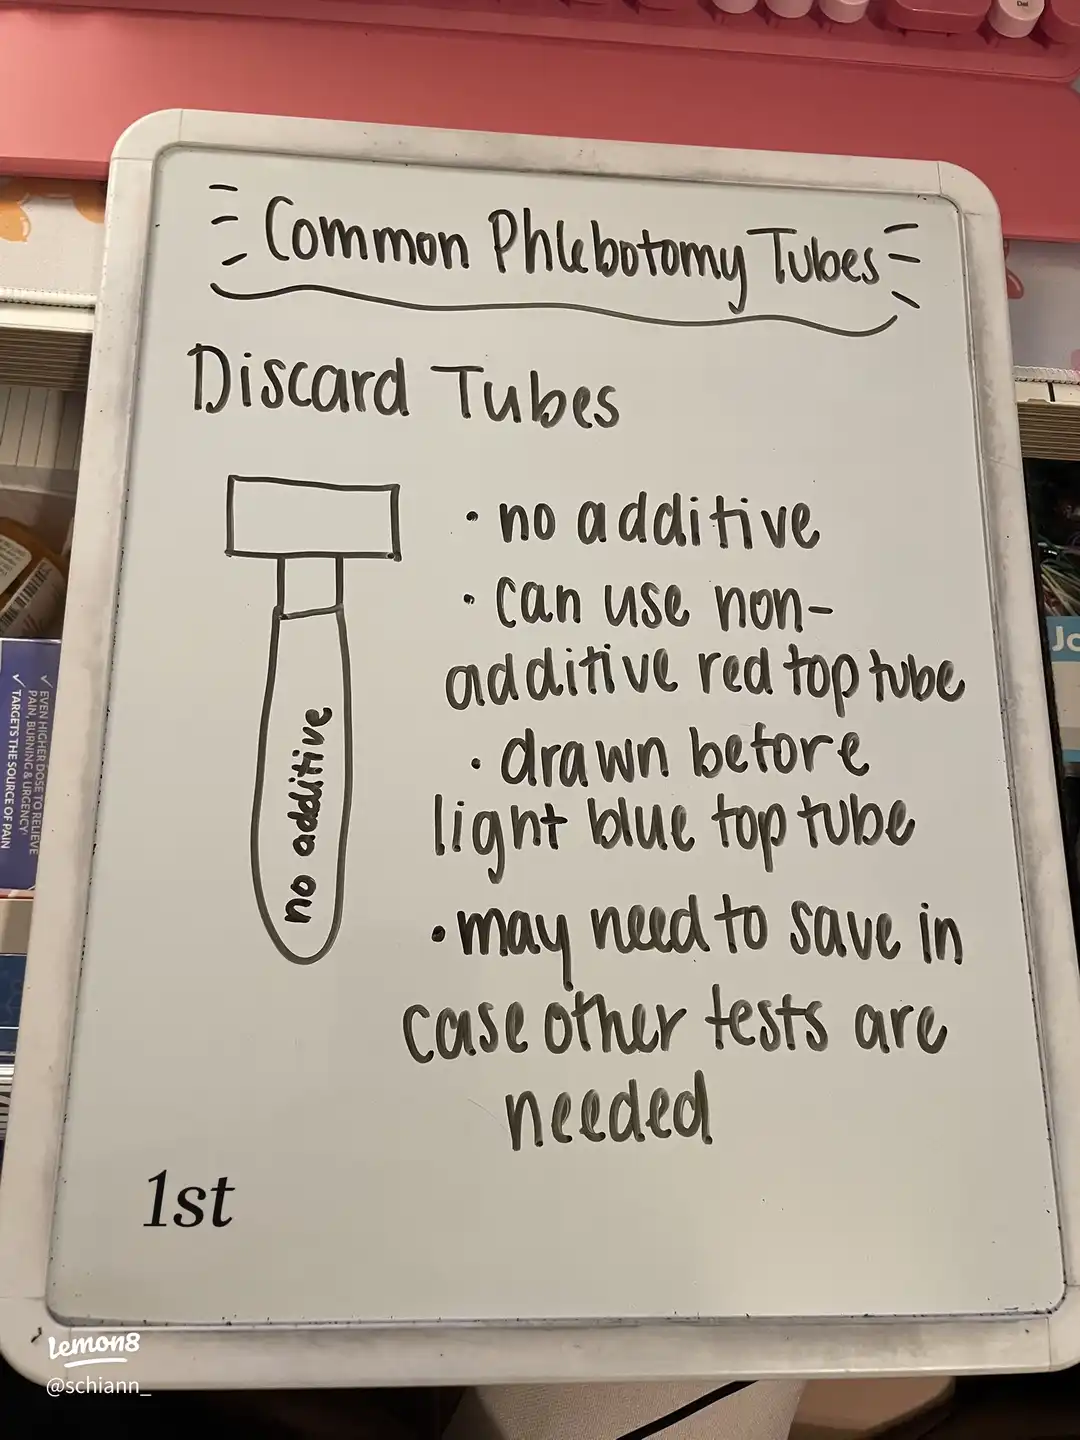 Del
Common Phlebotomy Tubes
Discard Tubes
• no additive
• can use non-
additive red top tube
• drawn before
light blue top tube
• may need to save in
case other tests are
needed
no additive
1st
✓ EVEN HIGHER DOSE TO RELIEVE
PAIN, BURNING & URGENCY
✓ TARGETS THE SOURCE OF PAIN
Jo
Lemon8
@schiann_